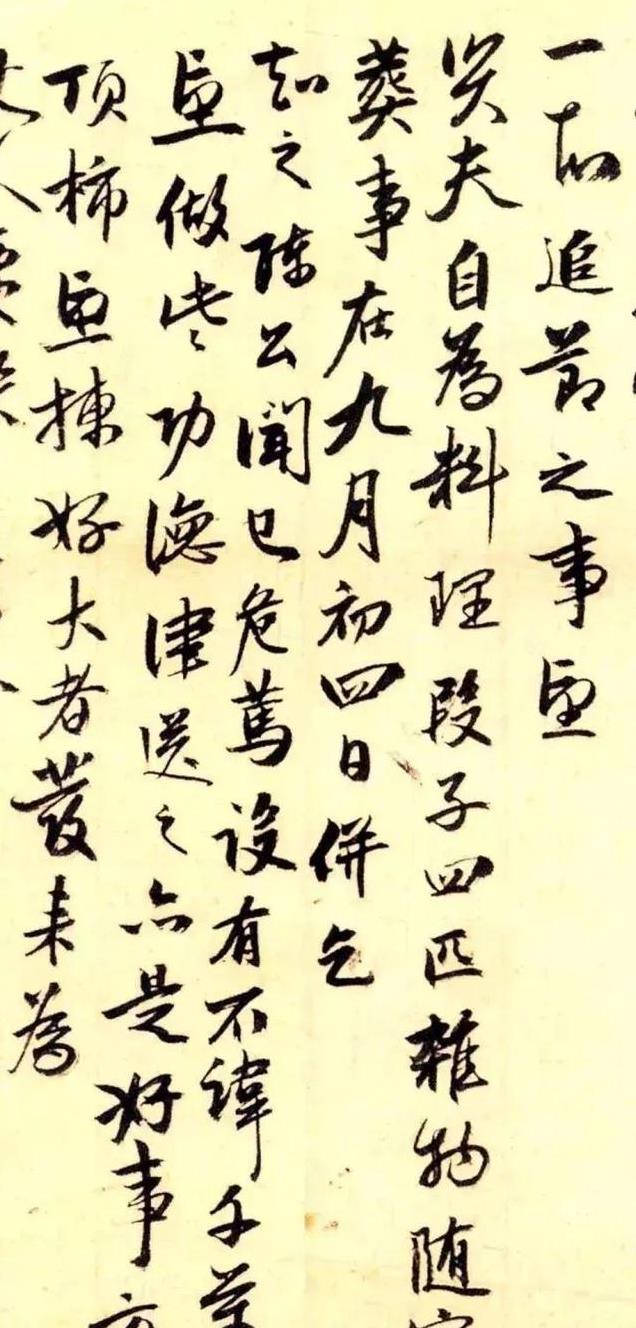 一切追節之事望
吳夫自為料理段子四匹雜物随
葬事在九月初四日併乞
知之陳公聞已危篤設有不諱千萬
望做些功德津送之亦是好事
頂柿望揀好大者發来為